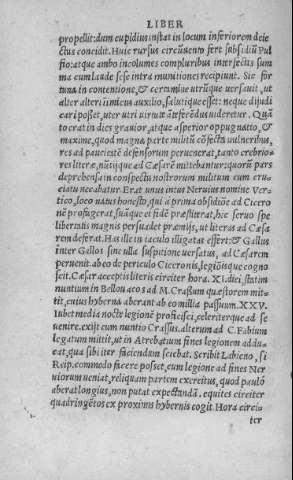 LIBER
propellit: dum cupidius instat in locum inferiorem deie
ctus concidit. Huic rursus circũuento fert subsidiũ Pul
fio: atque ambo incolumes compluribus interfectis sum
ma cum laude sese intra munitiones recipiunt. Sic for
tuna in contentione, & certamine utrũque uersauit, ut
alter alteri inimicus auxilio, salutique esset: neque dijudi
cari posset, uter utri uirtute ãteferẽdus uideretur. Quã
to erat in dies grauior, atque asperior oppugnatio, &
maxime, quod magna parte militũ cõfecta uulneribus,
res ad paucitatẽ defensorum peruenerat, tanto crebrio=
res literæ, nũtijque ad Cæsarẽ mittebantur: quorũ pars
deprehensa in conspectu nostrorum militum cum cru=
ciatu necabatur. Erat unus intus Neruius nomine Ver
tico, loco natus honesto, qui a prima obsidiõe ad Cicero
nẽ profugerat, suãque ei fidẽ præstiterat, hic seruo spe
libertatis magnis persuadet præmijs, ut literas ad Cæsa
rem deferat. Has ille in iaculo illigatas effert: & Gallus
inter Gallos sine ulla suspitione uersatus, ad Cæsarem
peruenit. ab eo de periculo Ciceronis, legiõisque cogno
scit. Cæsar acceptis literis circiter hora. XI. diei, statim
nuntium in Bellouacos ad M. Crassum quæstorem mit=
tit, cuius hyberna aberant ab eo millia passuum. XXV.
Iubet media nocte legionẽ proficisci, celeriterque ad se
uenire. exijt cum nuntio Crassus. alterum ad C. Fabium
legatum mittit, ut in Atrebatum fines legionem addu=
cat, qua sibi iter faciendum sciebat. Scribit Labieno, si
Reip. commodo facere posset, cum legione ad fines Ner
uiorum ueniat, reliquam partem exercitus, quod pauló
aberat longius, non putat expectandã. equites circiter
quadringẽtos ex proximis hybernis cogit. Hora circi=
ter